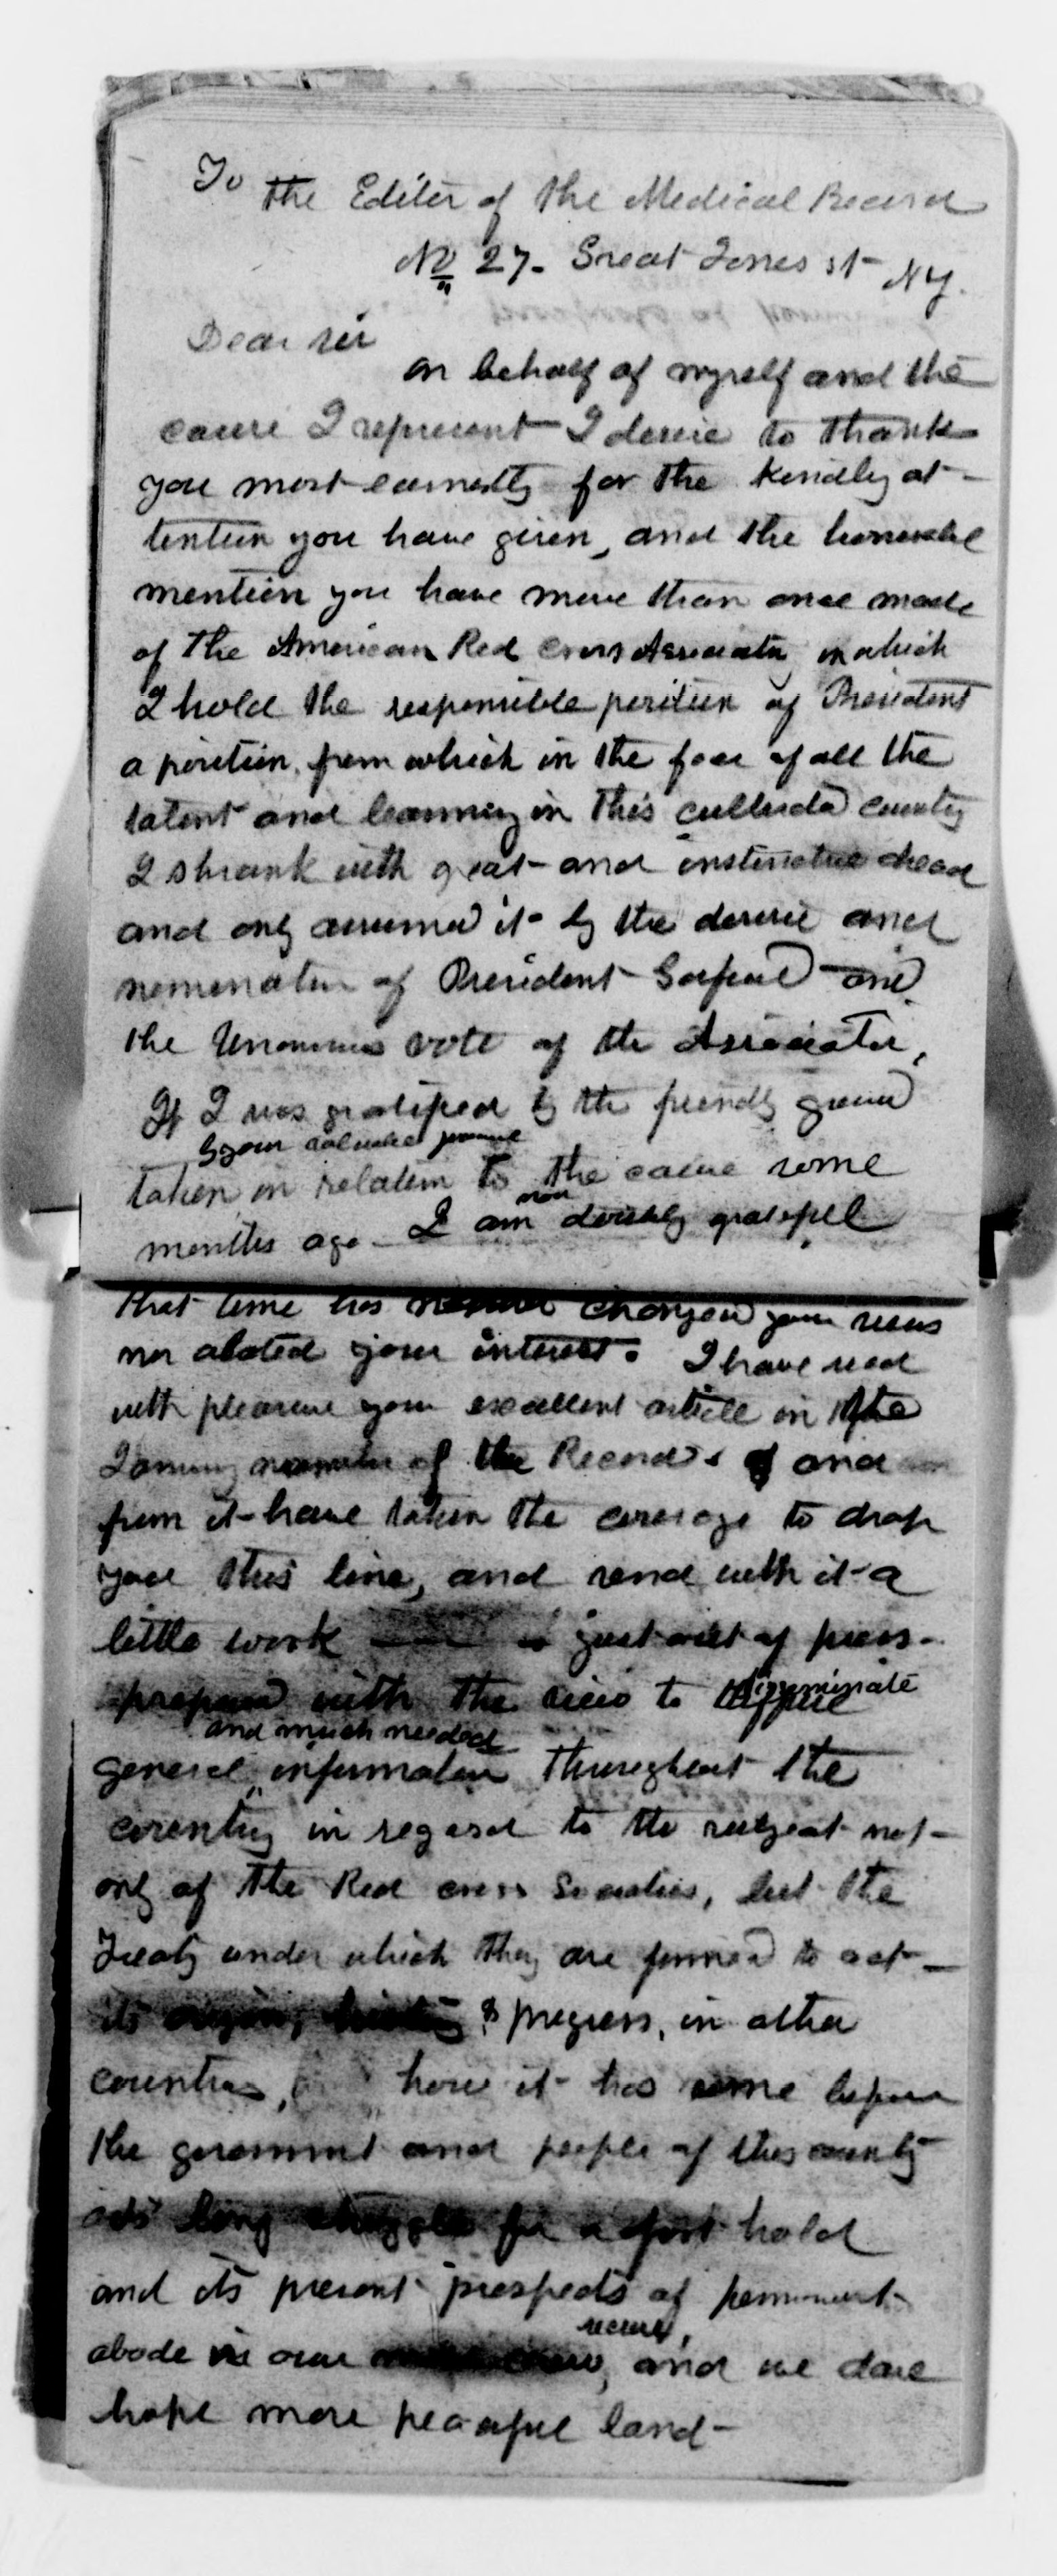 To the Editor of the Medical Record
No 27- Great Jones st NY.
Dear sir
on behalf of myself and the
cause I represent I desire to thank
you most earnestly for the kindly at-
tention you have given, and the honorable
mention you have more than once made
of the American Red Cross Association in which
I hold the responsible position of President
a position, from which in the face of all the
talent and learning in this country
I shrank with great and instinctive dread
and only assumed it by the desire and
nomination of President Garfield and
the Unanimous vote of the Association,
If I was gratified by the friendly ground
by your valuable journal
taken in relation to the cause some
months ago - I am now doubly grateful
that time has changed your views
nor abated your interest. I have read
with pleasure your excellent article in the
January number of the Record. and
from it have taken the courage to drop
you this line, and send with it a
little work just out of press-
prepared with the view to disseminate
and much needed
general information throughout the
country in regard to the subject not
only of the Red cross Societies, but the
Treaty under which they are formed to act -
its origin, history & progress, in other
countries, how it has come before
the government and people of this country
its long struggle for a foot hold
and its present prospects of permanent
abode in our secure, and we dare
hope more peaceful land -